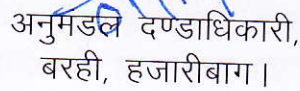 अनुमडल दण्डाधिकारी,
बरही, हजारीबाग।